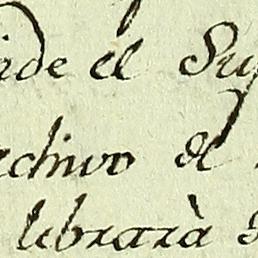 ide el Su
chivo el
librarà